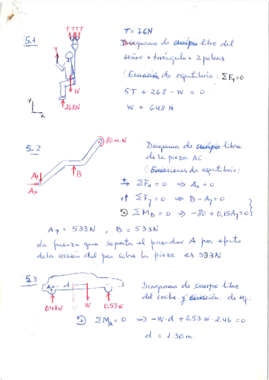 5.1
T T T T
T = 76N
Diagrama de cuerpo libre del
señor + triángulo + 2 poleas
Ecuación de equilibrio: ΣFy=0
5T + 268 - W = 0
W = 648 N
W
268N
y
x
5.2
80 m·N
A
Ax
B
Diagrama de cuerpo libre
de la pieza AC.
Ecuaciones de equilibrio:
ΣFx = 0 ⇒ Ax = 0
+↑ ΣFy = 0 ⇒ B - Ay = 0
ΣMB = 0 ⇒ -80 + 0,15Ay = 0
Ay = 533 N , B = 533 N
La fuerza que soporta el pasador A por efecto
de la acción del par sobre la pieza es 533N
5.3
d
0,47W
W
0,53W
Diagrama de cuerpo libre
del coche y ecuación de eq.
ΣMA = 0 ⇒ -W·d + 0,53·W·2.46 = 0
d = 1.30 m.